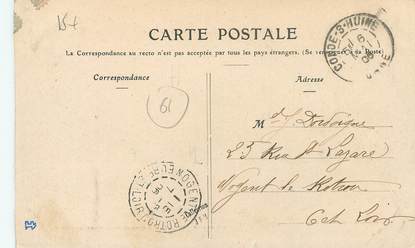 15f
CARTE POSTALE
La Correspondance au recto n'est pas acceptée par tous les pays étrangers. (Se renseigner à la Poste)
Correspondance
Adresse
CONDE-S-HUINE
ORNE
61
M
25 Rue St Lazare
Nogent le Rotrou
E et Loir
NOGENT-LE-ROTROU
EURE-ET-LOIR